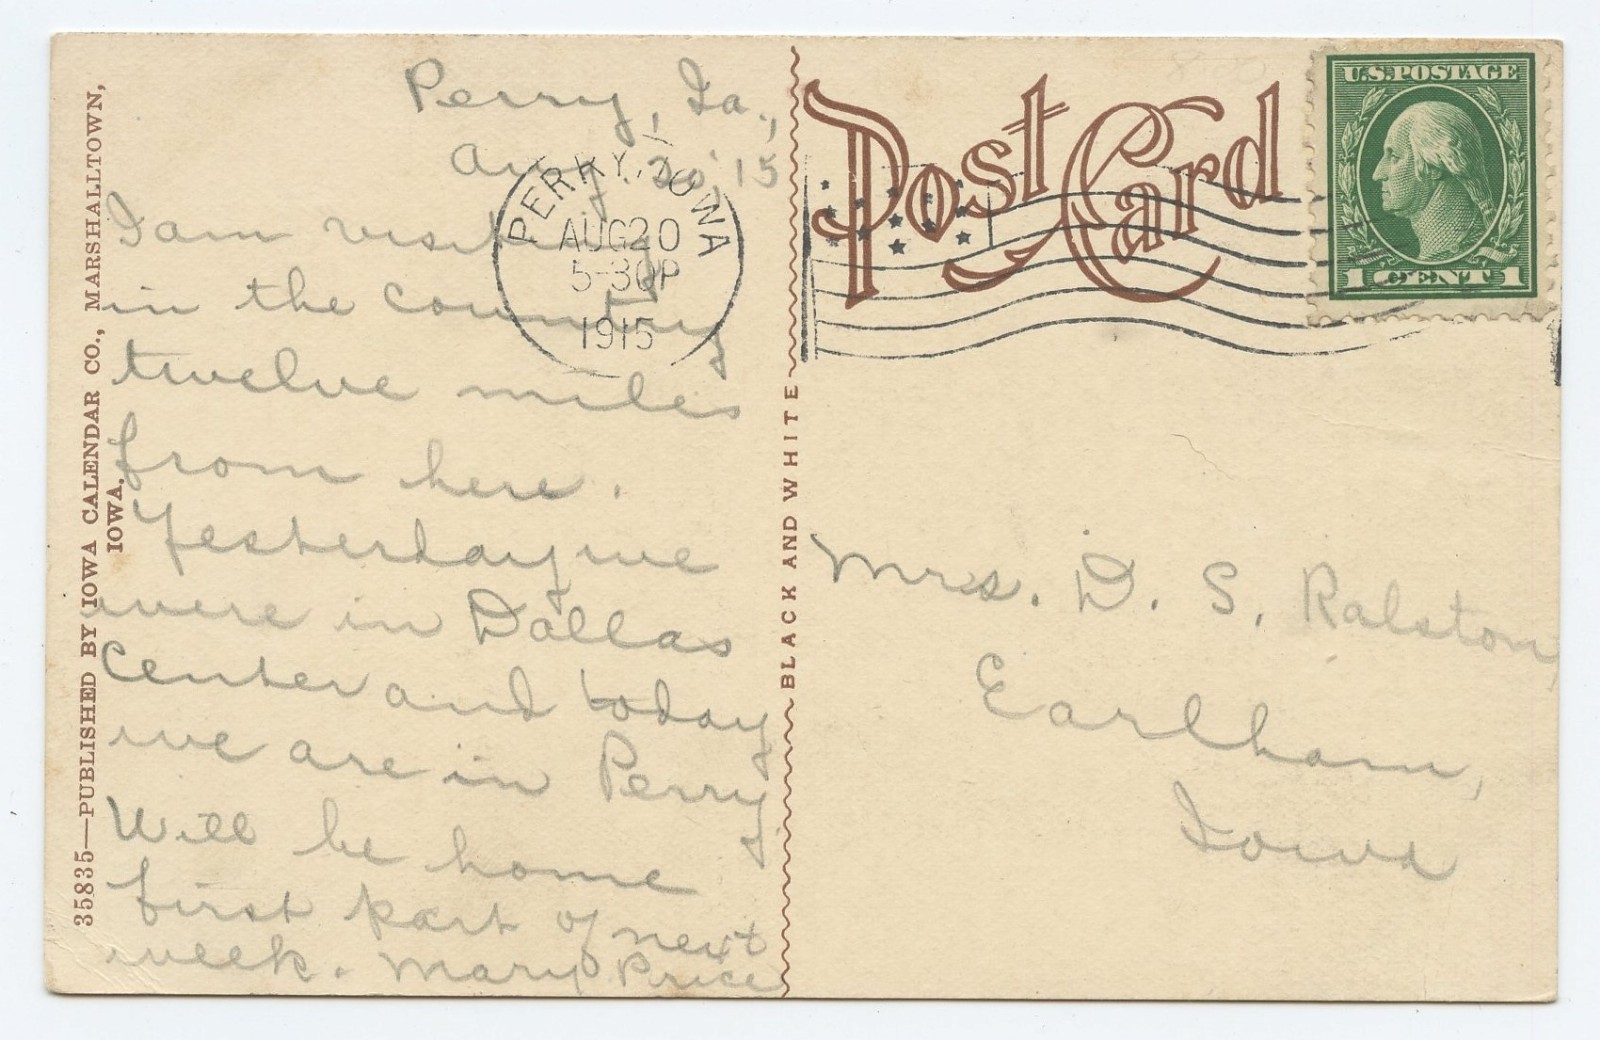 35835—PUBLISHED BY IOWA CALENDAR CO., MARSHALLTOWN,
IOWA.
Perry, Ia.,
Aug. 20 '15
I am visiting
in the country
twelve miles
from here.
Yesterday we
were in Dallas
Center and today
we are in Perry
Will be home
first part of next
week. Mary Price
PERRY, IOWA
AUG 20
5-30P
1915
BLACK AND WHITE
Post Card
U.S. POSTAGE
1 CENT 1
Mrs. D. S. Ralston,
Earlham,
Iowa